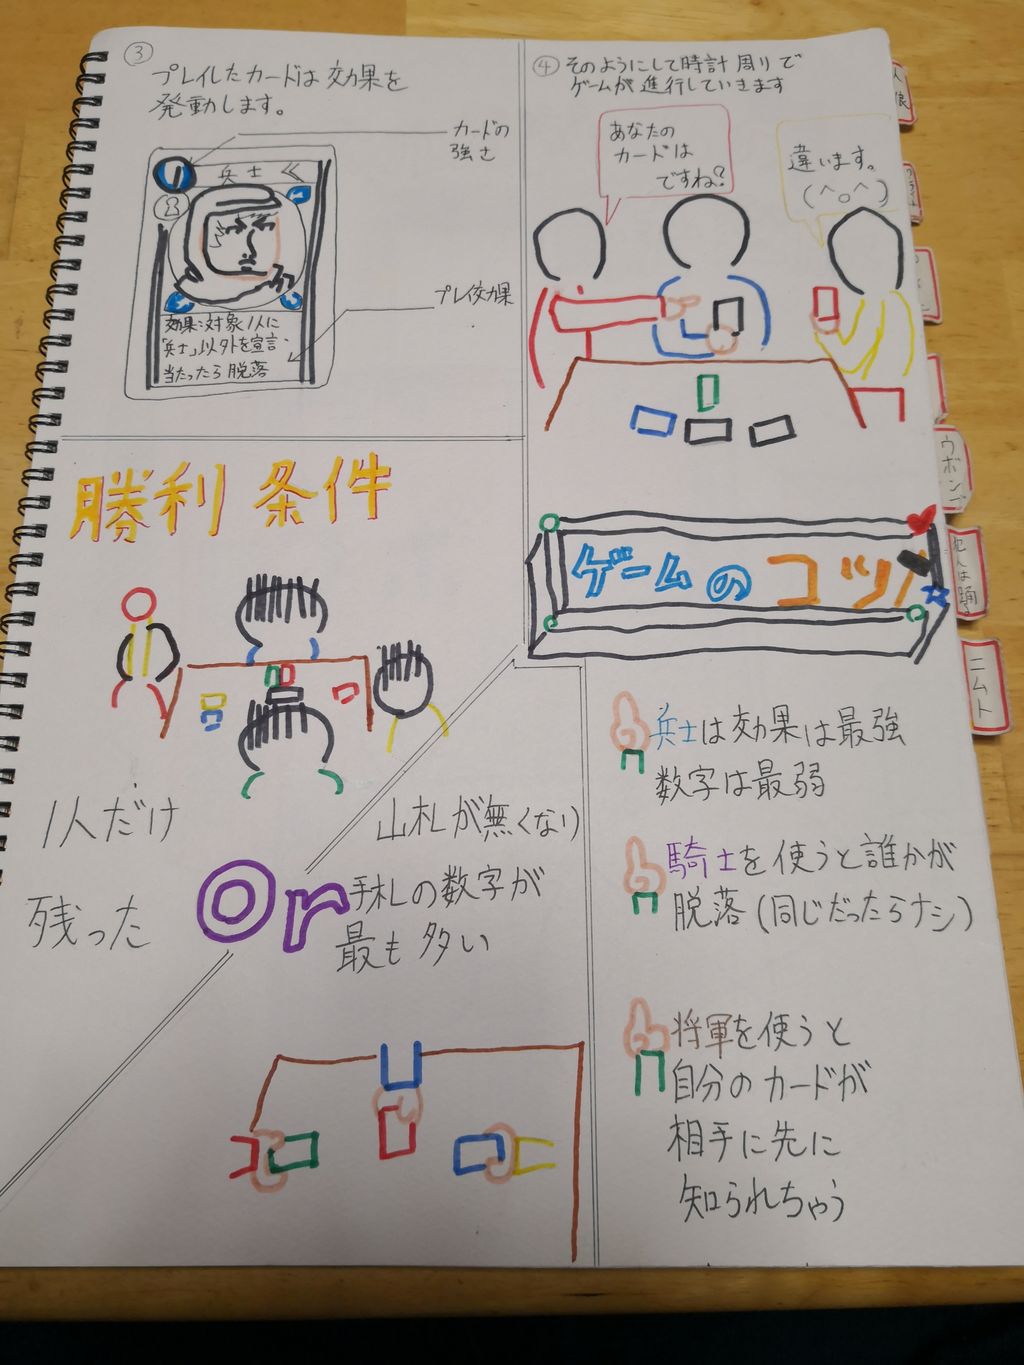 ③
プレイしたカードは効果を
発動します。
カードの
強さ
1
兵士
プレイ効果
効果:対象1人に
「兵士」以外を宣言
当たったら脱落
④そのようにして時計周りで
ゲームが進行していきます
あなたの
カードは
ですね?
違います。
(^o^)
勝利条件
1人だけ
残った
or
山札が無くなり
手札の数字が
最も多い
ゲームのコツ
兵士は効果は最強
数字は最弱
騎士を使うと誰かが
脱落(同じだったらナシ)
将軍を使うと
自分のカードが
相手に先に
知られちゃう
人狼
ウボンゴ
犯人は踊る
ニムト